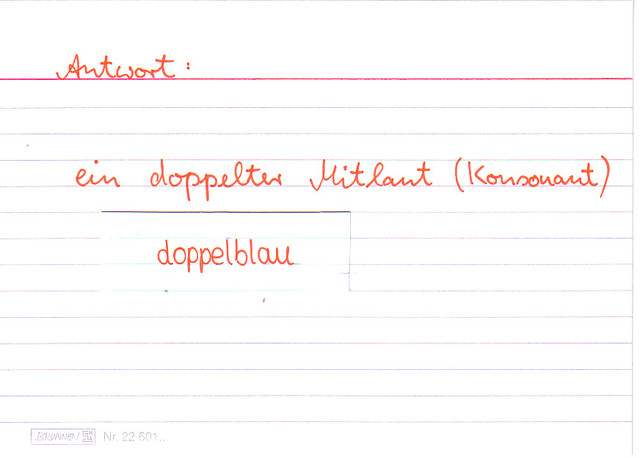 Antwort:
ein doppelter Mitlaut (Konsonant)
doppelblau
BRUNNEN Nr. 22 601..